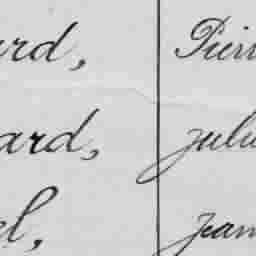 ard, Pier
ard, juli
el, jean